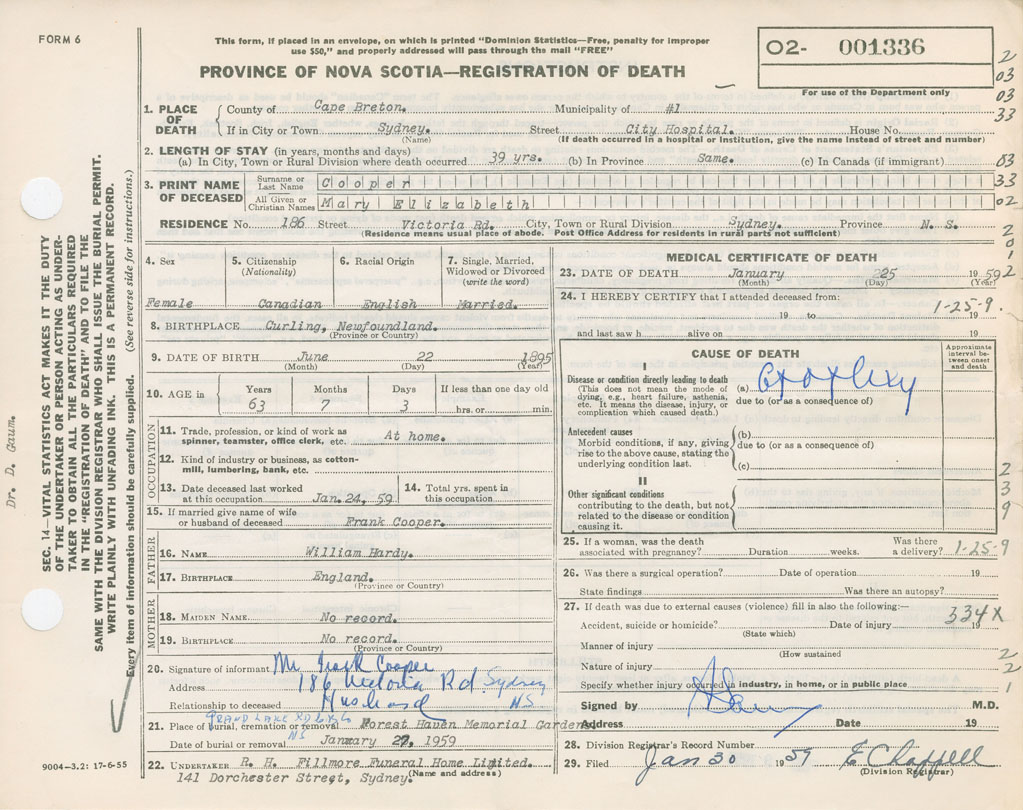 FORM 6
This form, if placed in an envelope, on which is printed "Dominion Statistics—Free, penalty for improper
use $50," and properly addressed will pass through the mail "FREE"
O2- 001336
For use of the Department only
PROVINCE OF NOVA SCOTIA—REGISTRATION OF DEATH
1. PLACE OF DEATH
County of Cape Breton. Municipality of #1
If in City or Town Sydney. Street City Hospital. House No.
(Name) (If death occurred in a hospital or institution, give the name instead of street and number)
2. LENGTH OF STAY (in years, months and days)
(a) In City, Town or Rural Division where death occurred 39 yrs. (b) In Province Same. (c) In Canada (if immigrant)
3. PRINT NAME OF DECEASED
Surname or Last Name Cooper
All Given or Christian Names Mary Elizabeth
RESIDENCE No. 186 Street Victoria Rd. City, Town or Rural Division Sydney. Province N. S.
(Residence means usual place of abode. Post Office Address for residents in rural parts not sufficient)
2
03
03
33
03
33
02
2
0
1
2
4. Sex
Female
5. Citizenship
(Nationality)
Canadian
6. Racial Origin
English
7. Single, Married,
Widowed or Divorced
(write the word)
Married.
8. BIRTHPLACE Curling, Newfoundland.
(Province or Country)
9. DATE OF BIRTH June 22 1895
(Month) (Day) (Year)
10. AGE in
Years Months Days If less than one day old
63 7 3 hrs. or min.
OCCUPATION
11. Trade, profession, or kind of work as
spinner, teamster, office clerk, etc. At home.
12. Kind of industry or business, as cotton-
mill, lumbering, bank, etc.
13. Date deceased last worked
at this occupation Jan.24, 59
14. Total yrs. spent in
this occupation
15. If married give name of wife
or husband of deceased Frank Cooper.
FATHER
16. NAME William Hardy.
17. BIRTHPLACE England.
(Province or Country)
MOTHER
18. MAIDEN NAME No record.
19. BIRTHPLACE No record.
(Province or Country)
20. Signature of informant Mr Frank Cooper
Address 186 Victoria Rd. Sydney
Relationship to deceased Husband NS.
GRAND LAKE RD
NS
21. Place of burial, cremation or removal Forest Haven Memorial Gardens
Date of burial or removal January 27, 1959
22. UNDERTAKER R. H. Fillmore Funeral Home Limited.
141 Dorchester Street, Sydney. (Name and address)
MEDICAL CERTIFICATE OF DEATH
23. DATE OF DEATH January 25 1959
(Month) (Day) (Year)
24. I HEREBY CERTIFY that I attended deceased from:
1-25-9
19 to 19
and last saw h alive on 19
CAUSE OF DEATH
Approximate
interval be-
tween onset
and death
I
Disease or condition directly leading to death
(This does not mean the mode of
dying, e.g., heart failure, asthenia,
etc. It means the disease, injury, or
complication which caused death.)
(a)
due to (or as a consequence of)
Antecedent causes
Morbid conditions, if any, giving
rise to the above cause, stating the
underlying condition last.
(b)
due to (or as a consequence of)
(c)
II
Other significant conditions
contributing to the death, but not
related to the disease or condition
causing it.
2
3
9
25. If a woman, was the death
associated with pregnancy? Duration weeks. Was there
a delivery? 1-25-9
26. Was there a surgical operation? Date of operation 19
State findings Was there an autopsy?
27. If death was due to external causes (violence) fill in also the following:—
334X
Accident, suicide or homicide? Date of injury 19
(State which)
Manner of injury
(How sustained
2
Nature of injury
2
Specify whether injury occurred in industry, in home, or in public place
1
Signed M.D.
Address Date 19
28. Division Registrar's Record Number
29. Filed Jan 30 1959 E Chappell
(Division Registrar)
SEC. 14—VITAL STATISTICS ACT MAKES IT THE DUTY
OF THE UNDERTAKER OR PERSON ACTING AS UNDER-
TAKER TO OBTAIN ALL THE PARTICULARS REQUIRED
IN THE "REGISTRATION OF DEATH" AND TO FILE THE
SAME WITH THE DIVISION REGISTRAR WHO SHALL ISSUE THE BURIAL PERMIT.
WRITE PLAINLY WITH UNFADING INK. THIS IS A PERMANENT RECORD.
Every item of information should be carefully supplied. (See reverse side for instructions.)
Dr. D. Gaum.
9004-3.2: 17-6-55